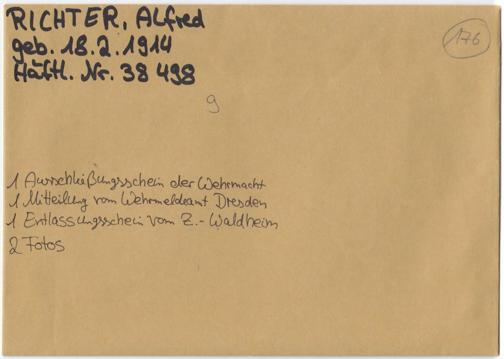 RICHTER, Alfred
176
geb. 18.2.1914
Häftl. Nr. 38 498
9
1 Ausschließungsschein der Wehrmacht
1 Mitteilung vom Wehrmeldeamt Dresden
1 Entlassungsschein vom Z.-Waldheim
2 Fotos